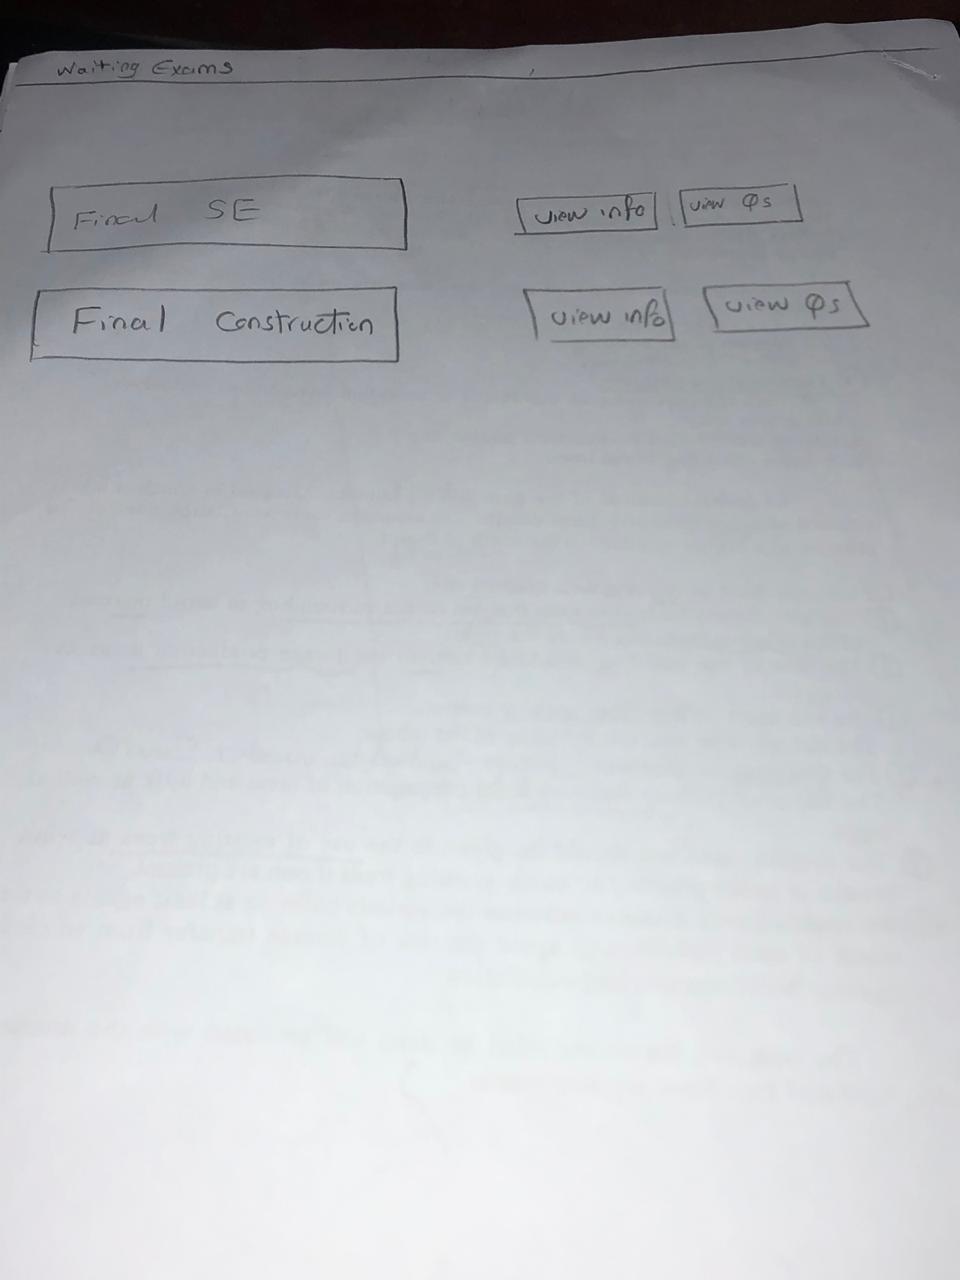 Waiting Exams
Final SE
view info
view Qs
Final Construction
view info
view Qs